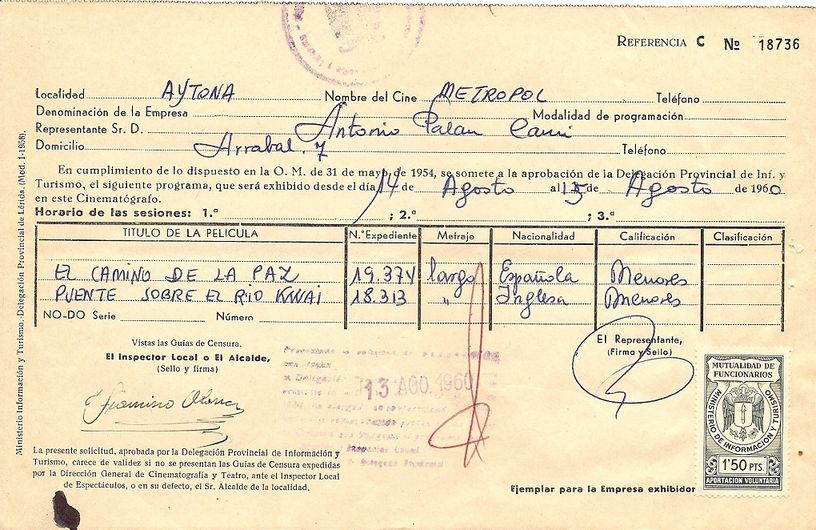 REFERENCIA C Nº 18736
Localidad AYTONA Nombre del Cine METROPOL Teléfono
Denominación de la Empresa Modalidad de programación
Representante Sr. D. Antonio Palau
Domicilio Arrabal. 7 Teléfono
En cumplimiento de lo dispuesto en la O. M. de 31 de mayo, de 1954, se somete a la aprobación de la Delegación Provincial de Inf. y
Turismo, el siguiente programa, que será exhibido desde el día 14 de Agosto al 15 de Agosto de 1960
en este Cinematógrafo.
Horario de las sesiones: 1.ª ; 2.ª ; 3.ª
TITULO DE LA PELICULA N.º Expediente Metraje Nacionalidad Calificación Clasificación
EL CAMINO DE LA PAZ 19.374 largo Española Menores
PUENTE SOBRE EL RIO KWAI 18.313 " Inglesa Menores
NO-DO Serie Número
Vistas las Guías de Censura.
El Inspector Local o El Alcalde,
(Sello y firma)
El Representante,
(Firma y Sello)
13 AGO. 1960
MUTUALIDAD DE
FUNCIONARIOS
MINISTERIO DE INFORMACION Y TURISMO
1'50 PTS.
APORTACION VOLUNTARIA
La presente solicitud, aprobada por la Delegación Provincial de Información y
Turismo, carece de validez si no se presentan las Guías de Censura expedidas
por la Dirección General de Cinematografía y Teatro, ante el Inspector Local
de Espectáculos, o en su defecto, el Sr. Alcalde de la localidad.
Ejemplar para la Empresa exhibidor
Ministerio Información y Turismo.-Delegación Provincial de Lérida. (Mod. 1-1958).